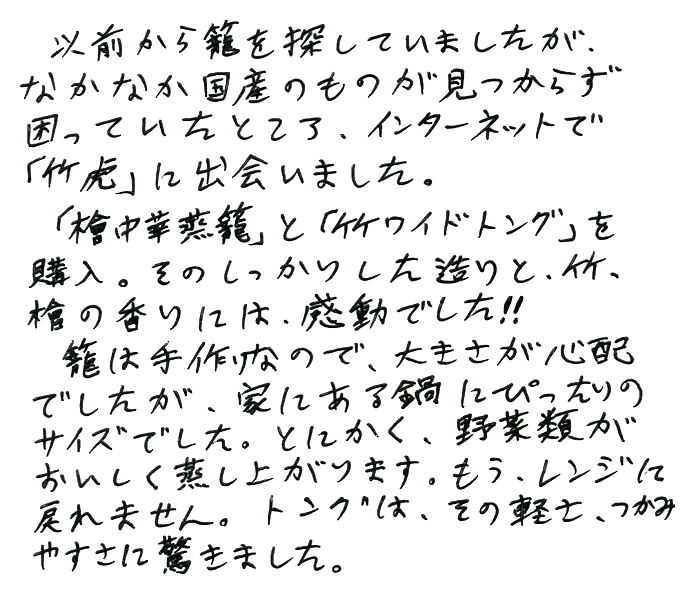 以前から籠を探していましたが、
なかなか国産のものが見つからず
困っていたところ、インターネットで
「竹虎」に出会いました。
「檜中華蒸籠」と「竹ワイドトング」を
購入。そのしっかりした造りと、竹、
檜の香りには、感動でした!!
籠は手作りなので、大きさが心配
でしたが、家にある鍋にぴったりの
サイズでした。とにかく、野菜類が
おいしく蒸し上がります。もう、レンジに
戻れません。トングは、その軽さ、つかみ
やすさに驚きました。